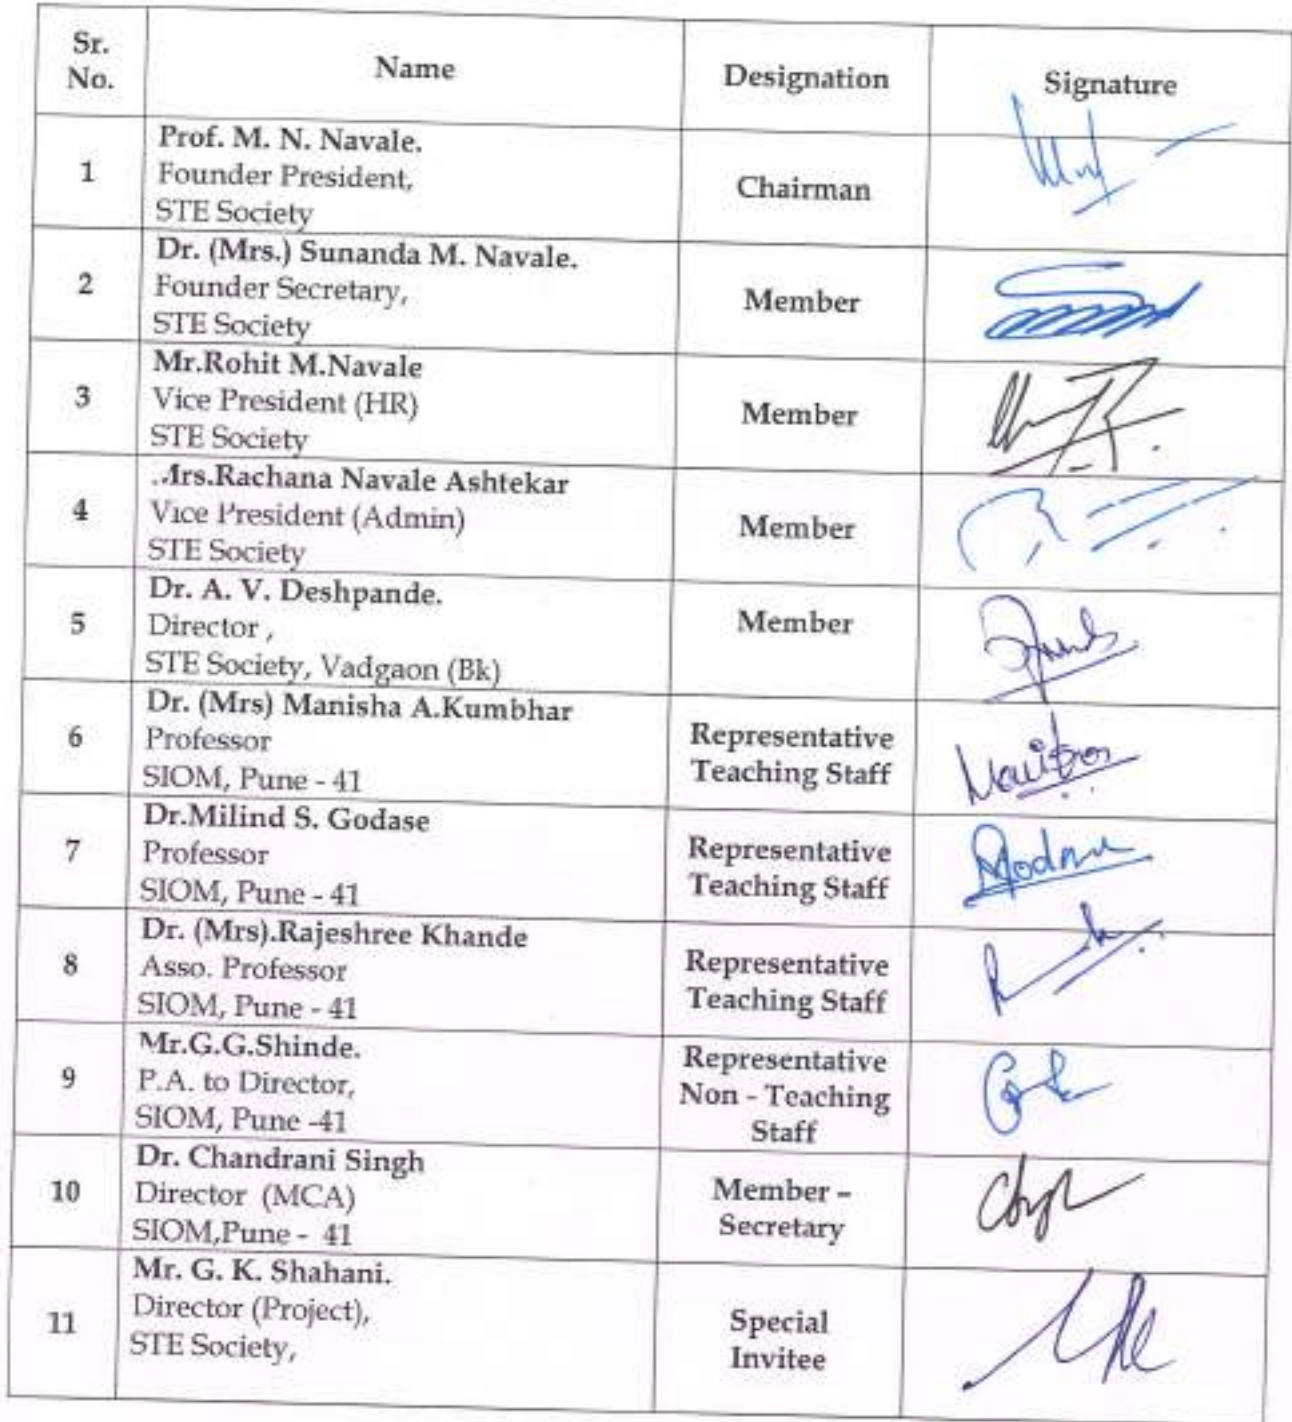 Sr. No.
Name
Designation
Signature
1
Prof. M. N. Navale.
Founder President,
STE Society
Chairman
2
Dr. (Mrs.) Sunanda M. Navale.
Founder Secretary,
STE Society
Member
3
Mr.Rohit M.Navale
Vice President (HR)
STE Society
Member
4
Mrs.Rachana Navale Ashtekar
Vice President (Admin)
STE Society
Member
5
Dr. A. V. Deshpande.
Director ,
STE Society, Vadgaon (Bk)
Member
6
Dr. (Mrs) Manisha A.Kumbhar
Professor
SIOM, Pune - 41
Representative
Teaching Staff
7
Dr.Milind S. Godase
Professor
SIOM, Pune - 41
Representative
Teaching Staff
8
Dr. (Mrs).Rajeshree Khande
Asso. Professor
SIOM, Pune - 41
Representative
Teaching Staff
9
Mr.G.G.Shinde.
P.A. to Director,
SIOM, Pune -41
Representative
Non - Teaching
Staff
10
Dr. Chandrani Singh
Director (MCA)
SIOM,Pune - 41
Member –
Secretary
11
Mr. G. K. Shahani.
Director (Project),
STE Society,
Special
Invitee